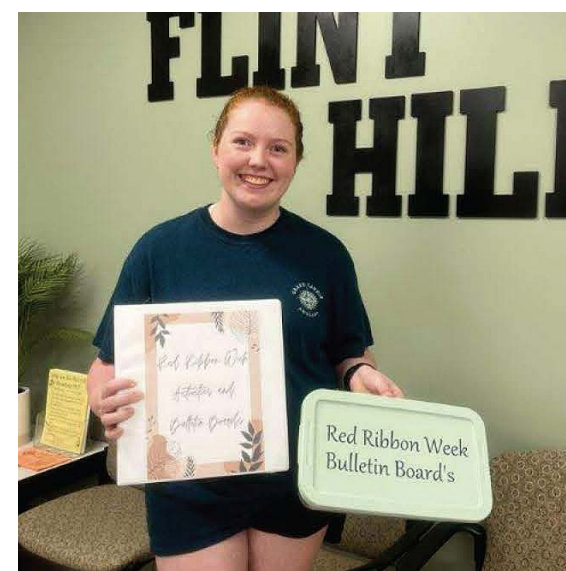 FLINT
HILL
Red Ribbon Week
Activities and
Bulletin Boards
Red Ribbon Week
Bulletin Board's